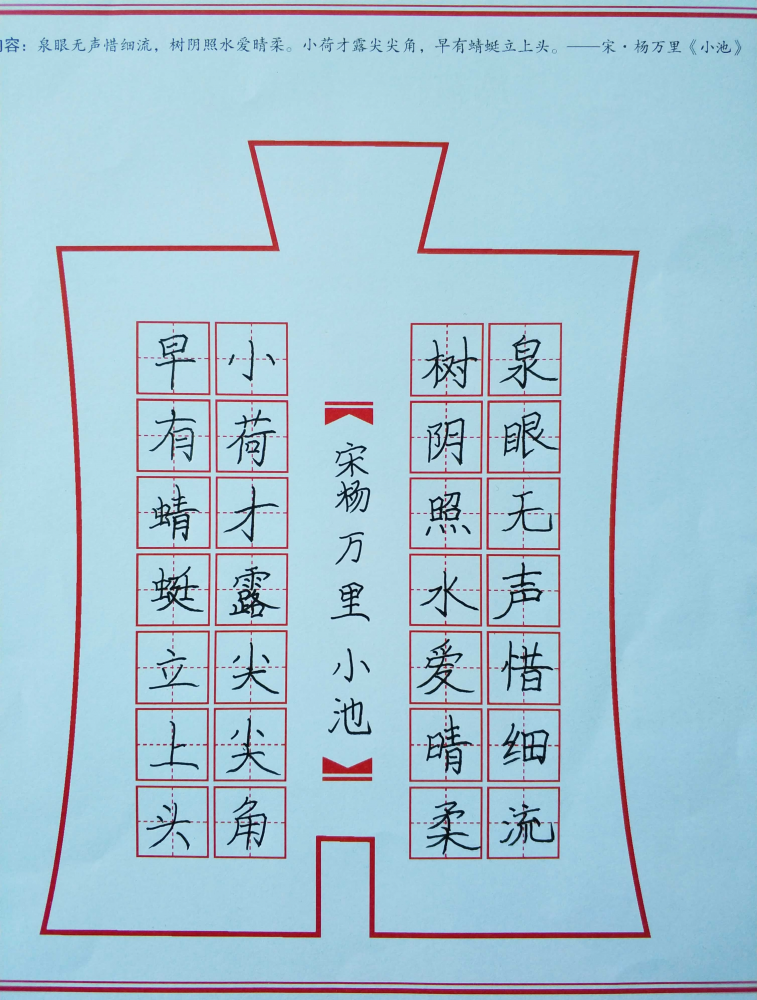 内容：泉眼无声惜细流，树阴照水爱晴柔。小荷才露尖尖角，早有蜻蜓立上头。——宋·杨万里《小池》
泉眼无声惜细流
树阴照水爱晴柔
宋杨万里小池
小荷才露尖尖角
早有蜻蜓立上头